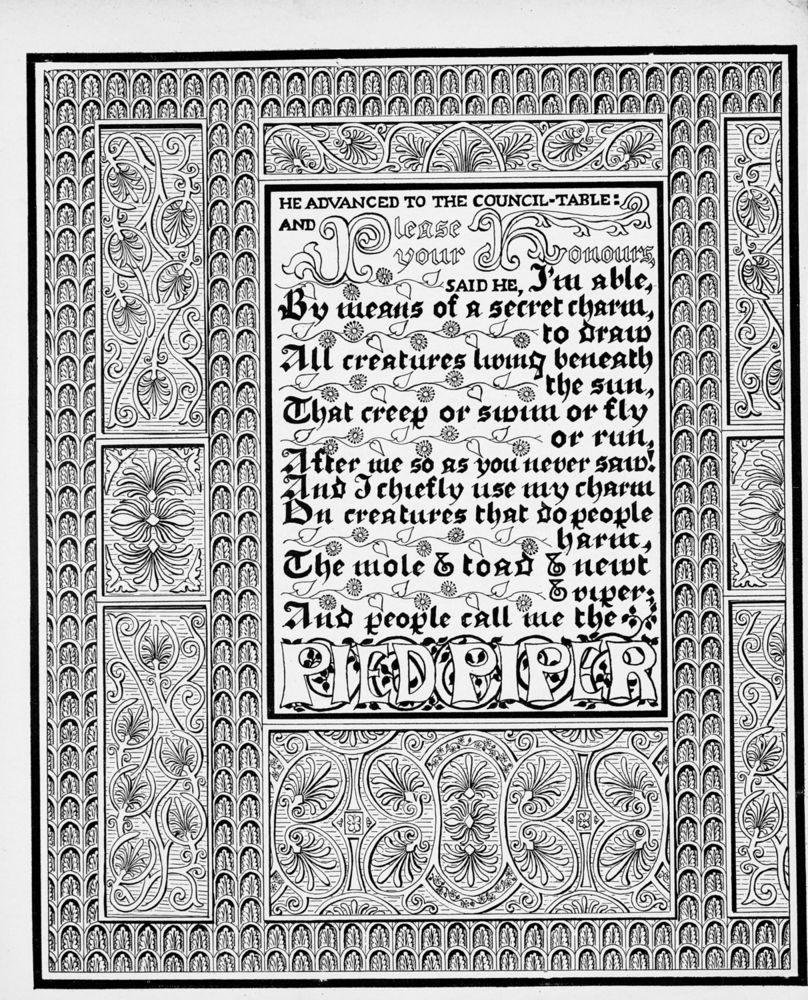 HE ADVANCED TO THE COUNCIL-TABLE:
AND Please
your Honours,
SAID HE, I'm able,
By means of a secret charm,
to draw
All creatures living beneath
the sun,
That creep or swim or fly
or run,
After me so as you never saw!
And I chiefly use my charm
On creatures that do people
harm,
The mole & toad & newt
& viper;
And people call me the
PIED PIPER